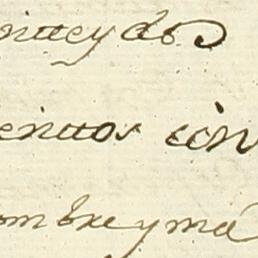 inttey dos
enttos con
ombre y ma